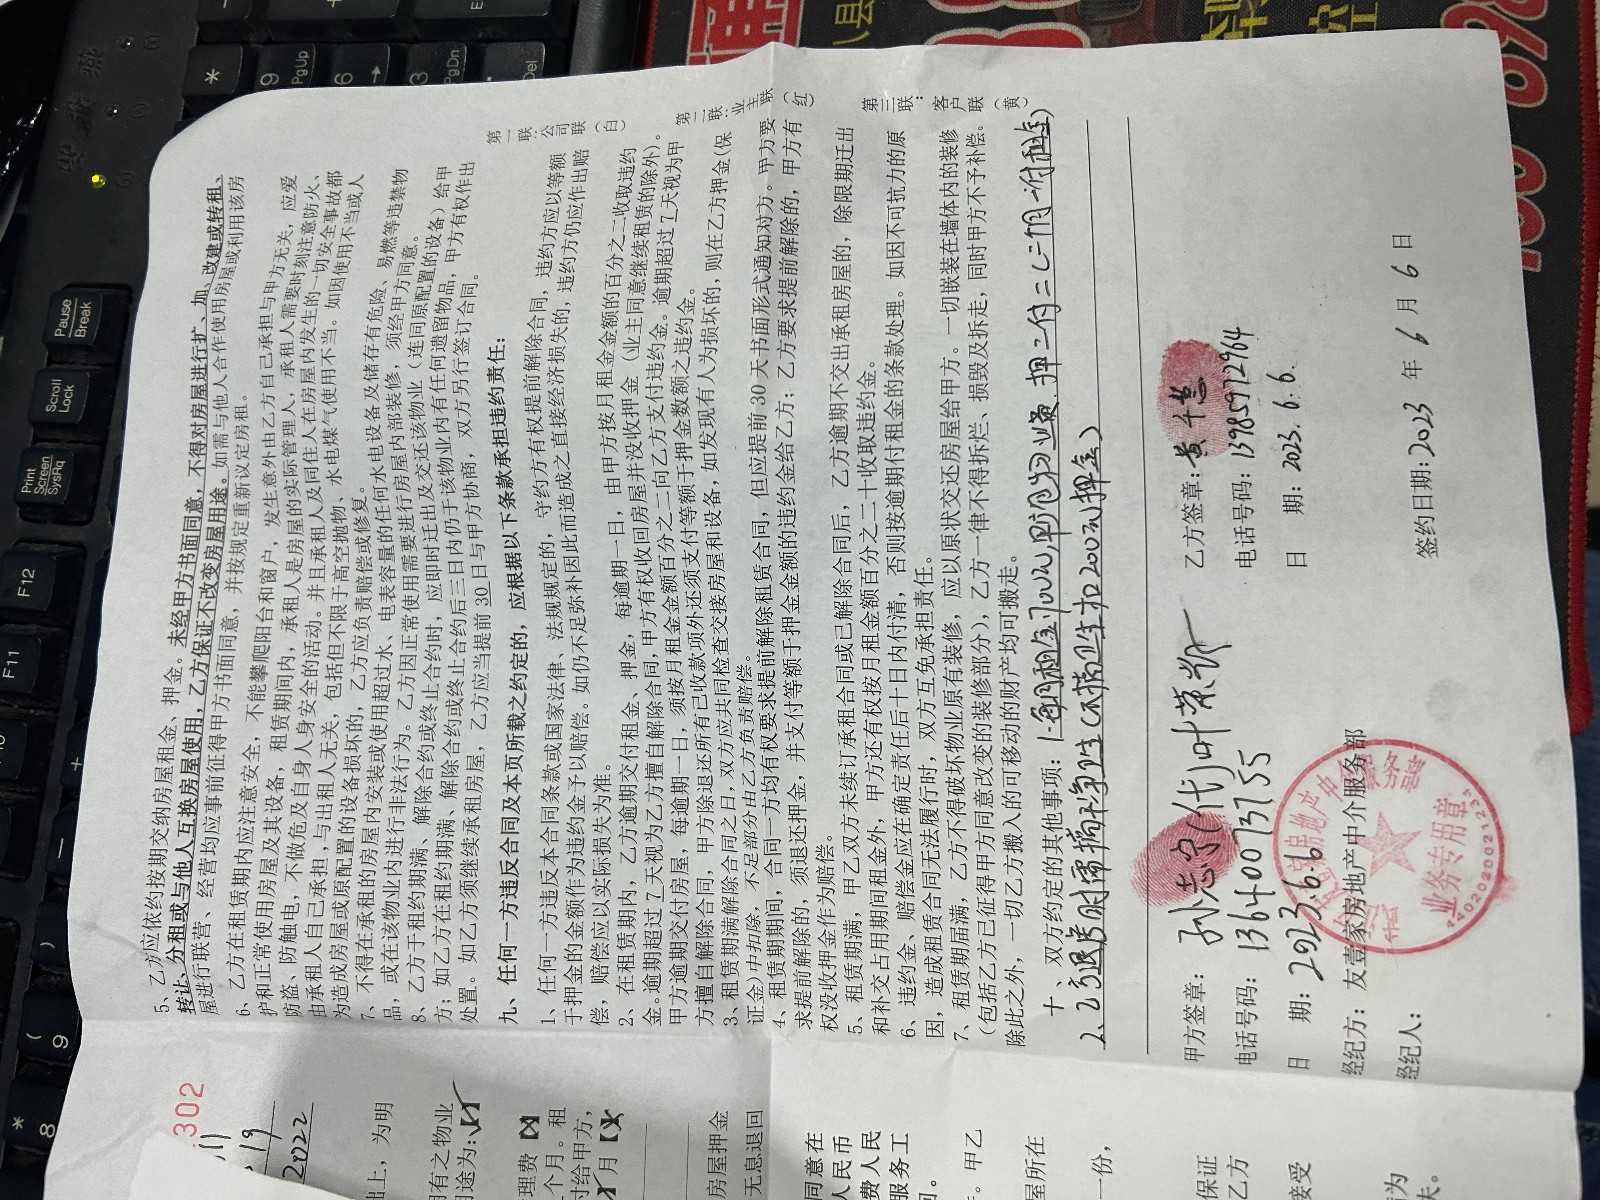 5、乙方应依约按期交纳房屋租金、押金。未经甲方书面同意，不得对房屋进行扩、加、改建或转租、
转让、分租或与他人互换房屋使用，乙方保证不改变房屋用途。如需与他人合作使用房屋或利用该房
屋进行联营、经营均应事前征得甲方书面同意，并按规定重新议定房租。
6、乙方在租赁期内应注意安全，不能攀爬阳台和窗户，发生意外由乙方自己承担与甲方无关，应爱
护和正常使用房屋及其设备，租赁期间内，承租人是房屋的实际管理人，承租人需要时刻注意防火、
防盗、防触电，不做危及自身人身安全的活动。并且承租人及同住人在房屋内发生的一切安全事故都
由承租人自己承担，与出租人无关，包括但不限于高空抛物、水电煤气使用不当。如因使用不当或人
为造成房屋或原配置的设备损坏的，乙方应负责赔偿或修复。
7、不得在承租的房屋内安装或使用超过水、电表容量的任何水电设备及储存有危险、易燃等违禁物
品，或在该物业内进行非法行为。乙方因正常使用需要进行房屋内部装修，须经甲方同意。
8、乙方于租约期满、解除合约或终止合约时，应即时迁出及交还该物业（连同原配置的设备）给甲
方；如乙方在租约期满、解除合约或终止合约后三日内仍于该物业内有任何遗留物品，甲方有权作出
处置。如乙方须继续承租房屋，乙方应当提前30日与甲方协商，双方另行签订合同。
九、任何一方违反合同及本页所载之约定的，应根据以下条款承担违约责任：
1、任何一方违反本合同条款或国家法律、法规规定的，守约方有权提前解除合同，违约方应以等额
于押金的金额作为违约金予以赔偿。如仍不足弥补因此而造成之直接经济损失的，违约方仍应作出赔
偿，赔偿应以实际损失为准。
2、在租赁期内，乙方逾期交付租金、押金，每逾期一日，由甲方按月租金金额的百分之二收取违约
金。逾期超过7天视为乙方擅自解除合同，甲方有权收回房屋并没收押金（业主同意继续租赁的除外）。
甲方逾期交付房屋，每逾期一日，须按月租金金额百分之二向乙方支付违约金。逾期超过7天视为甲
方擅自解除合同，甲方除退还所有已收款项外还须支付等额于押金数额之违约金。
3、租赁期满解除合同之日，双方应共同检查交接房屋和设备，如发现有人为损坏的，则在乙方押金(保
证金)中扣除，不足部分由乙方负责赔偿。
4、租赁期期间，合同一方均有权要求提前解除租赁合同，但应提前30天书面形式通知对方。甲方要
求提前解除的，须退还押金，并支付等额于押金金额的违约金给乙方；乙方要求提前解除的，甲方有
权没收押金作为赔偿。
5、租赁期满，甲乙双方未续订承租合同或已解除合同后，乙方逾期不交出承租房屋的，除限期迁出
和补交占用期间租金外，甲方还有权按月租金额百分之二十收取违约金。
6、违约金、赔偿金应在确定责任后十日内付清，否则按逾期付租金的条款处理。如因不可抗力的原
因，造成租赁合同无法履行时，双方互免承担责任。
7、租赁期届满，乙方不得破坏物业原有装修，应以原状交还房屋给甲方。一切嵌装在墙体内的装修
（包括乙方已征得甲方同意改变的装修部分），乙方一律不得拆烂、损毁及拆走，同时甲方不予补偿。
除此之外，一切乙方搬入的可移动的财产均可搬走。
十、双方约定的其他事项：
2、乙方退房时需搞干净卫生（不搞卫生扣200元押金）
第一联：公司联（白）
第二联：业主联（红）
第三联：客户联（黄）
甲方签章：孙志宁(代)叶荣
电话号码：13640073755
日 期：2023.6.6
经纪方：友壹家房地产中介服务部
经纪人：
乙方签章：黄
电话号码：13985972964
日 期：2023.6.6.
签约日期：2023 年 6 月 6 日
业务专用章
302
19
2022
出上，为明
有之物业
途为：
理费
个月。租
付给甲方，
月
房屋押金
无息退回
同意在
人民币
费人民
服务工
。甲乙
屋所在
一份，
保证
乙方
接受
为
Print Screen SysRq
Scroll Lock
Pause Break
F11
F12
* 8
( 9
)
9 PgUp
6
3 PgDn
Del